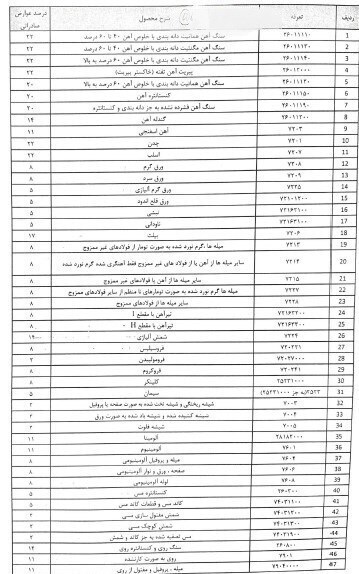 ردیف تعرفه شرح محصول درصد عوارض صادراتی
1 ۲۶۰۱۱۱۱۰ سنگ آهن هماتیت دانه بندی با خلوص آهن ۴۰ تا ۶۰ درصد ۲۲
2 ۲۶۰۱۱۱۲۰ سنگ آهن مگنتیت دانه بندی با خلوص آهن ۴۰ تا ۶۰ درصد ۲۲
3 ۲۶۰۱۱۱۴۰ سنگ آهن مگنتیت دانه بندی با خلوص آهن ۶۰ درصد به بالا ۲۲
4 ۲۶۰۱۲۰۰۰ پیریت آهن تفته (خاکستر پیریت) ۲۲
5 ۲۶۰۱۱۱۳۰ سنگ آهن هماتیت دانه بندی با خلوص آهن ۶۰ درصد به بالا ۲۰
6 ۲۶۰۱۱۱۵۰ کنستانتره آهن ۲۰
7 ۲۶۰۱۱۱۹۰ سنگ آهن فشرده نشده به جز دانه بندی و کنستانتره ۲۰
8 ۲۶۰۱۱۲۰۰ گندله آهن ۱۴
9 ۷۲۰۳ آهن اسفنجی ۱۱
10 ۷۲۰۱ چدن ۲۲
11 ۷۲۰۷ اسلب ۲۲
12 ۷۲۰۸ ورق گرم ۸
13 ۷۲۰۹ ورق سرد ۸
14 ۷۲۲۵ ورق گرم آلیاژی ۵
15 ۷۲۱۰۱۲۰۰ ورق قلع اندود ۵
16 ۷۲۱۶۳۱۰۰ نبشی ۵
17 ۷۲۱۶۳۱۰۰ ناودانی ۵
18 ۷۲۰۶ بیلت ۱۷
19 ۷۲۱۳ میله ها ،گرم نورد شده به صورت تومار از فولادهای غیر ممزوج ۸
20 ۷۲۱۴ سایر میله ها از آهن یا از فولاد های غیر ممزوج فقط آهنگری شده گرم نورد شده ۸
21 ۷۲۱۵ سایر میله ها از آهن یا فولادهای غیر ممزوج ۸
22 ۷۲۲۷ میله ها گرم نورد شده به صورت تومارهای نا منظم از سایر فولادهای ممزوج ۸
23 ۷۲۲۸ سایر میله ها از فولادهای ممزوج ۸
24 ۷۲۱۶۳۲۰۰ تیرآهن با مقطع I ۸
25 ۷۲۱۶۳۳۰۰ تیرآهن با مقطع H ۸
26 ۷۲۲۴ شمش آلیاژی
27 ۷۲۰۲۲۱ فروسیلیس ۸
28 ۷۲۰۲۷۰۰۰ فرومولیبدن ۳
29 ۷۲۰۲۴۱ فروکروم ۸
30 ۲۵۲۳۱۰۰۰ کلینکر ۸
31 ۲۵۲۳(به جز ۲۵۲۳۱۰۰۰) سیمان ۵
32 ۷۰۰۳ شیشه ریختگی و شیشه تخت شده به صورت صفحه یا پروفیل ۲
33 ۷۰۰۴ شیشه کشیده شده و شیشه باد شده به صورت ورق ۲
34 ۷۰۰۵ شیشه فلوت ۲
35 ۲۸۱۸۲۰۰۰ آلومینا ۱۱
36 ۷۶۰۱ آلومینیوم ۱۱
37 ۷۶۰۴ میله و پروفیل آلومینیومی ۸
38 ۷۶۰۶ صفحه ، ورق و نوار آلومینیومی ۸
39 ۷۶۰۸ لوله آلومینیومی ۸
40 ۲۶۰۳۰۰ کنستانتره مس ۵
41 ۷۴۰۳۱۱۰۰ کاتد مس و قطعات کاتد مس ۵
42 ۷۴۰۳۱۲۰۰ شمش مفتول سازی مسی ۲
43 ۷۴۰۳۱۳۰۰ شمش کوچک مسی ۲
44 ۷۴۰۳۱۹۰۰ مس تصفیه شده به جز کاتد و شمش ۲
45 ۲۶۰۸۰۰ سنگ روی و کنستانتره روی ۱۴
46 ۷۹۰۱ روی به صورت کارنشده ۱۱
47 ۷۹۰۴۰۰۰۰ میله ، پروفیل و مفتول از روی ۱۱